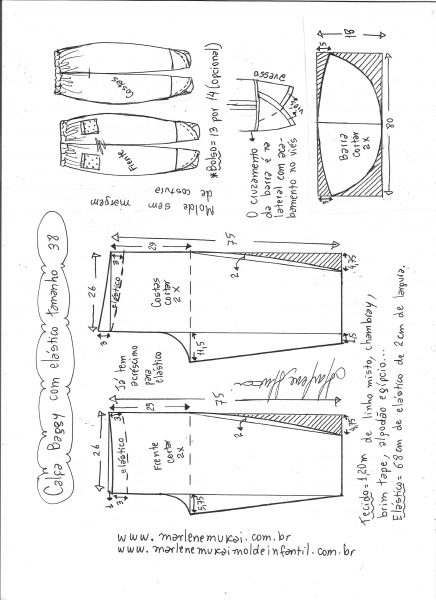 Calça Baggy com elástico tamanho 38
Molde sem margem
de costura
*Bolso = 13 por 14 (opcional)
Costas
Frente
avesso
viés
O cruzamento
da barra é na
lateral com aca-
bamento no viés
18
5
Barra
cortar
2x
80
75
29
26
3
3
elástico
Costas
cortar
2x
2
4,75
11,5
1,5
Já tem
acréscimo
para
elástico
75
29
26
3
1
3
elástico
Frente
cortar
2x
2
4,75
5,75
Marlene Mukai
Tecido = 1,20m de linho misto, chambray,
brim tape, algodão egípcio...
Elástico = 68cm de elástico de 2cm de largura.
www.marlenemukai.com.br
www.marlenemukaimoldeinfantil.com.br